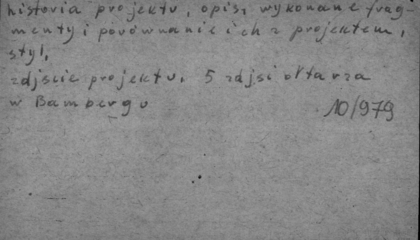 historia projektu, opis, wykonane frag-
menty i porównanie ich z projektem,
styl,
zdjście projektu, 5 zdjsi ołtarza
w Bambergu
10/979